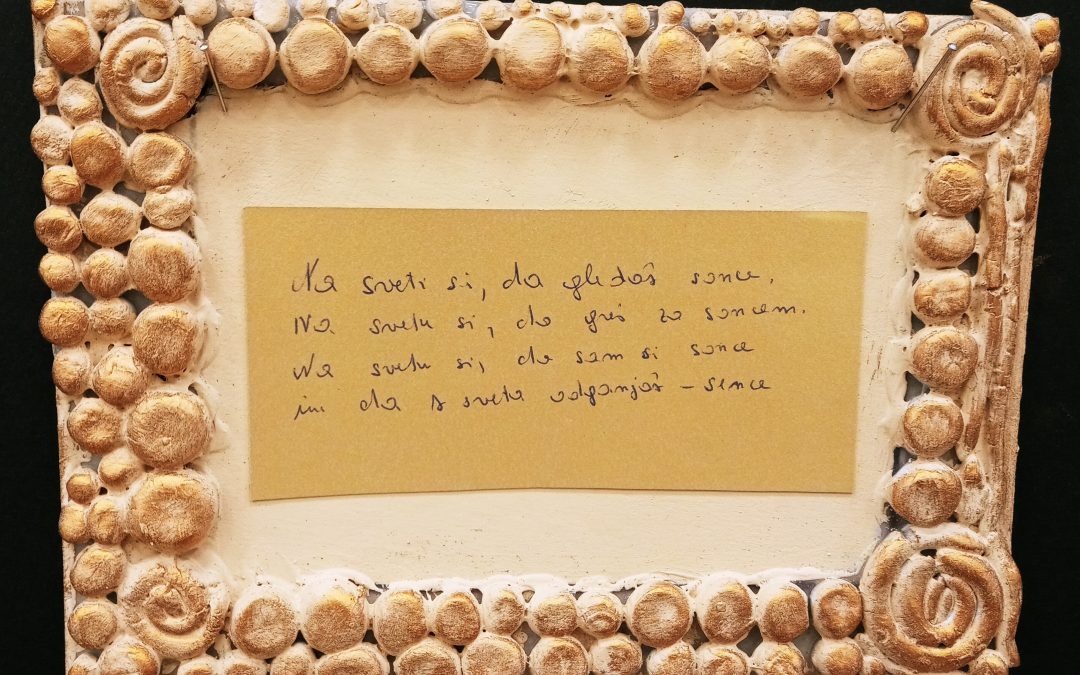 Na sveti si, da gledaš sonce.
Na svetu si, da greš za soncem.
Na svetu si, da sam si sonce
in da s sveta odganjaš – sence